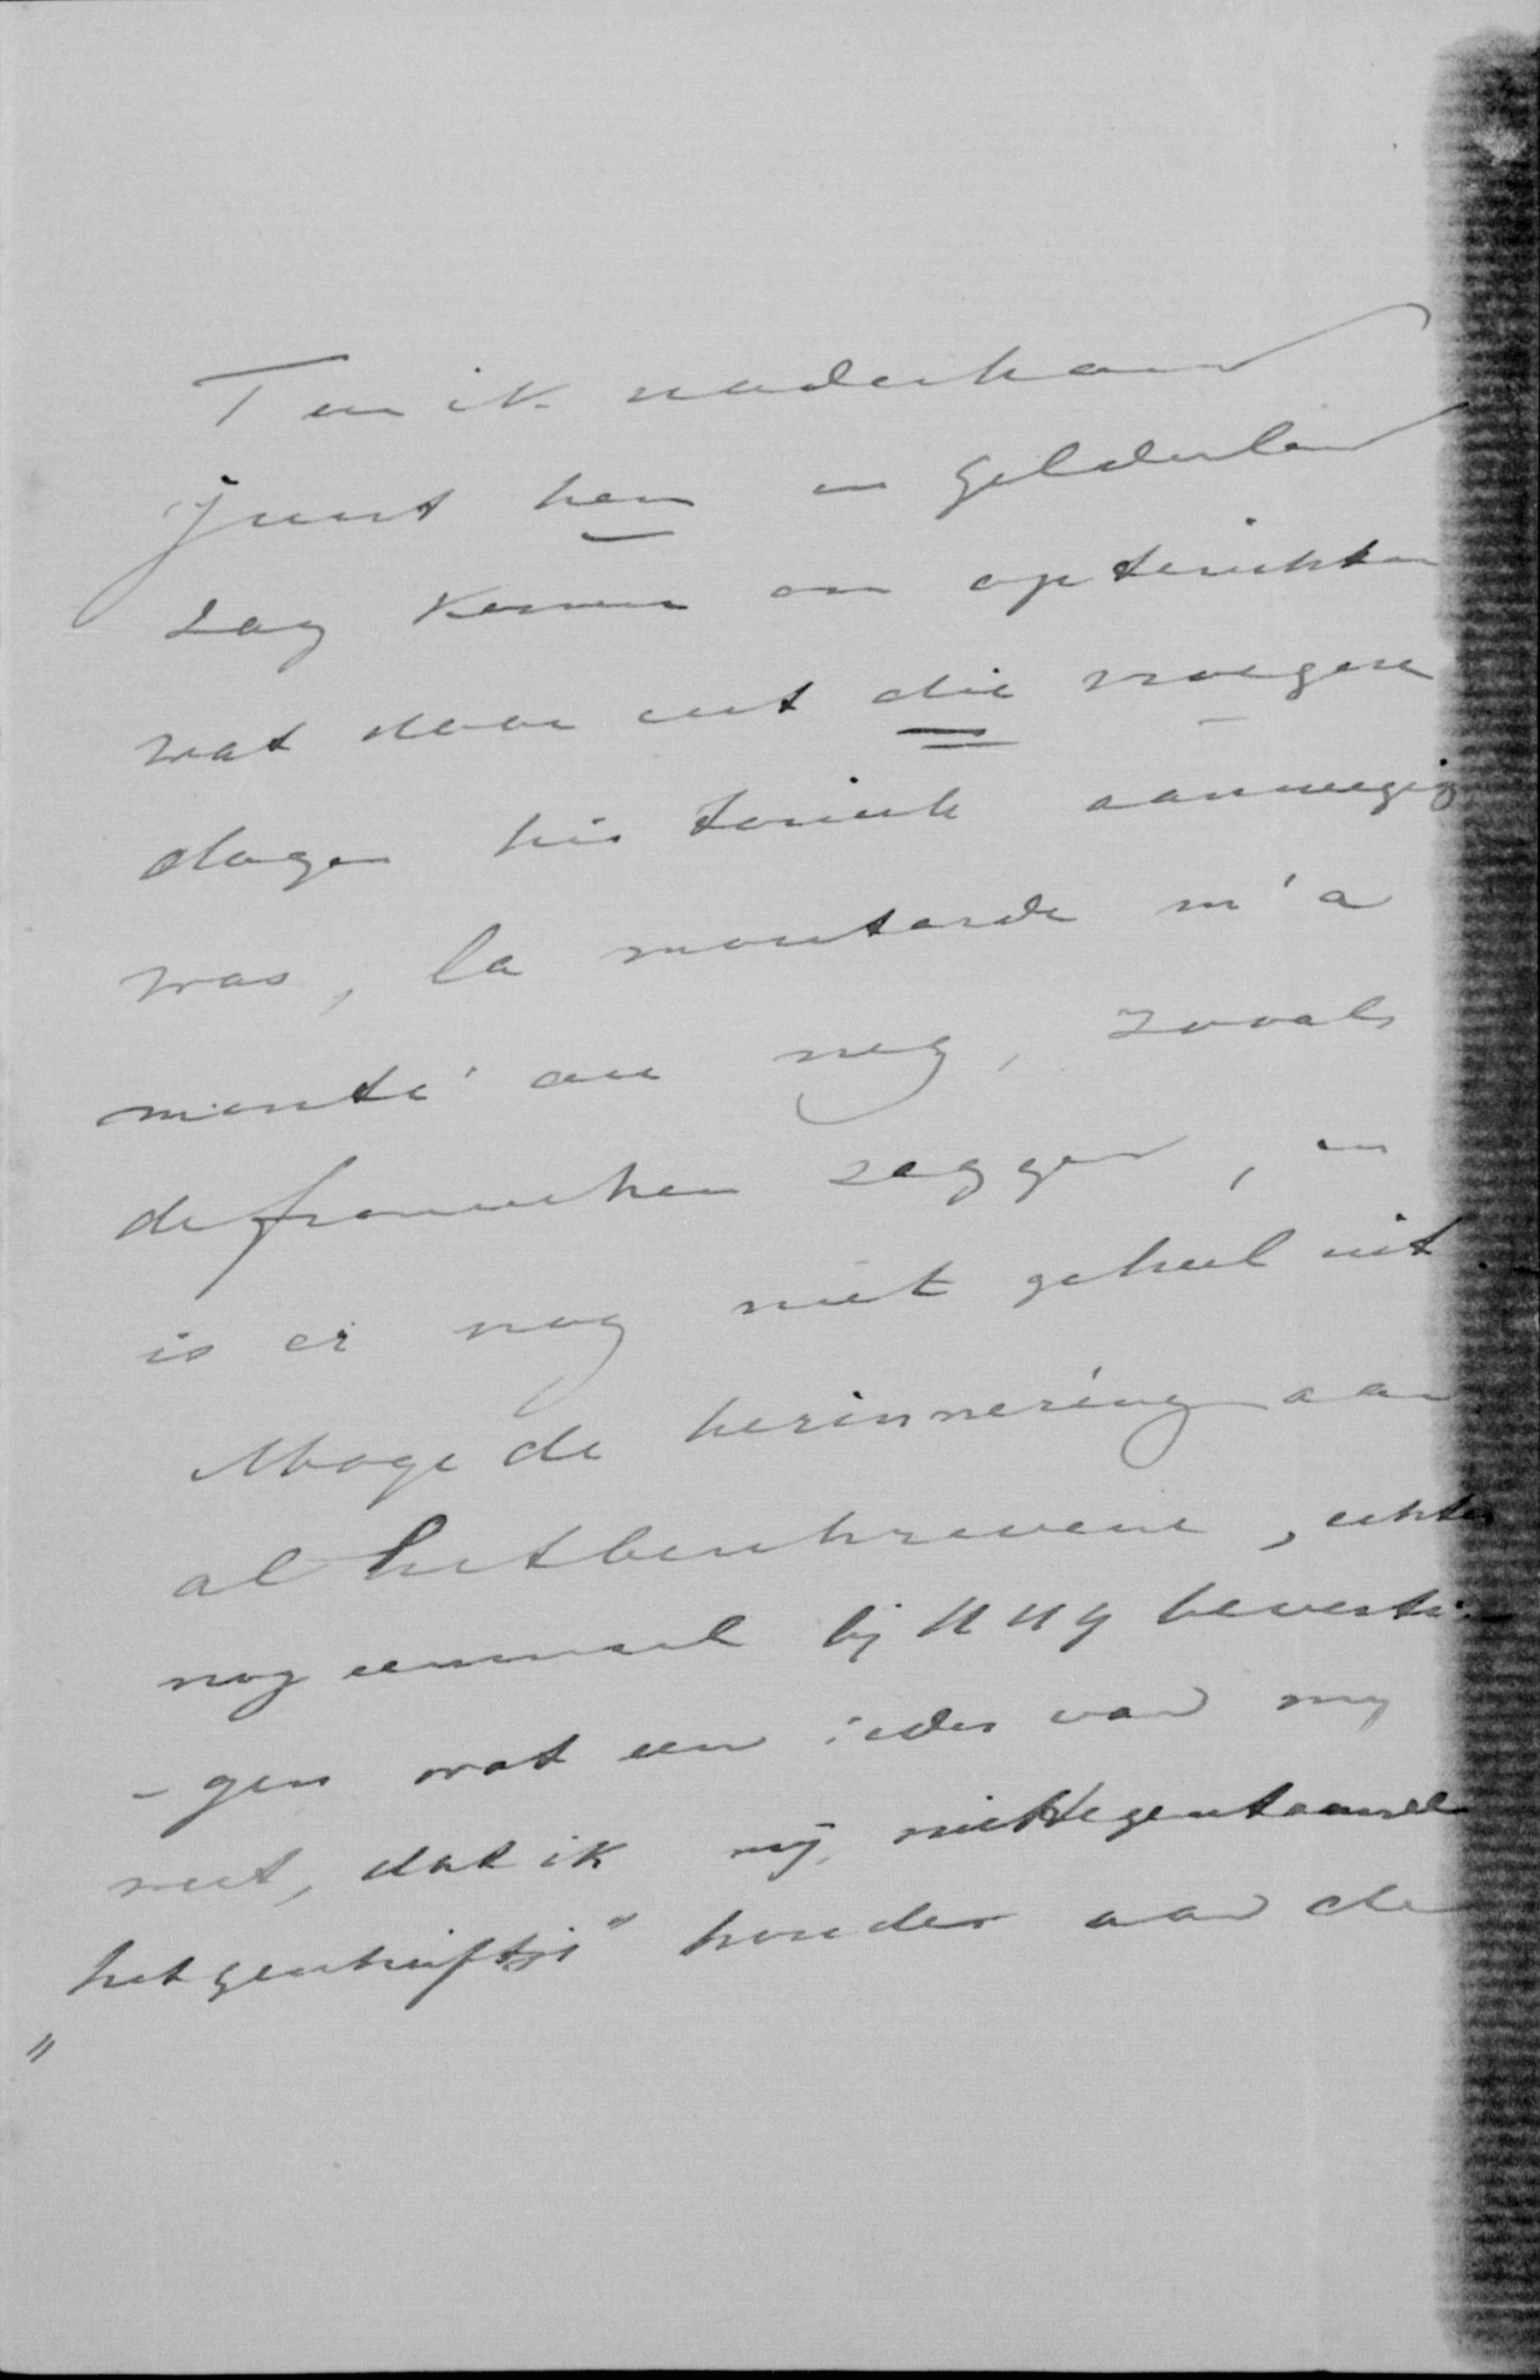 Toen ik naderhand
juist hem in Gelderland
zag komen om opterichten
wat daar uit die vroegere
dagen historisch aanwezig
was, la moutarde m'a
monté au nez, zooals
de franschen zeggen, en
is er nog niet geheel uit.
Moge de herinnering aan
al het beschrevene, echter
nog eenmaal bij U U G bevesti-
-gen wat een ieder van my
weet, dat ik mij, niettegenstaande
"het genschriftje" houden aan de